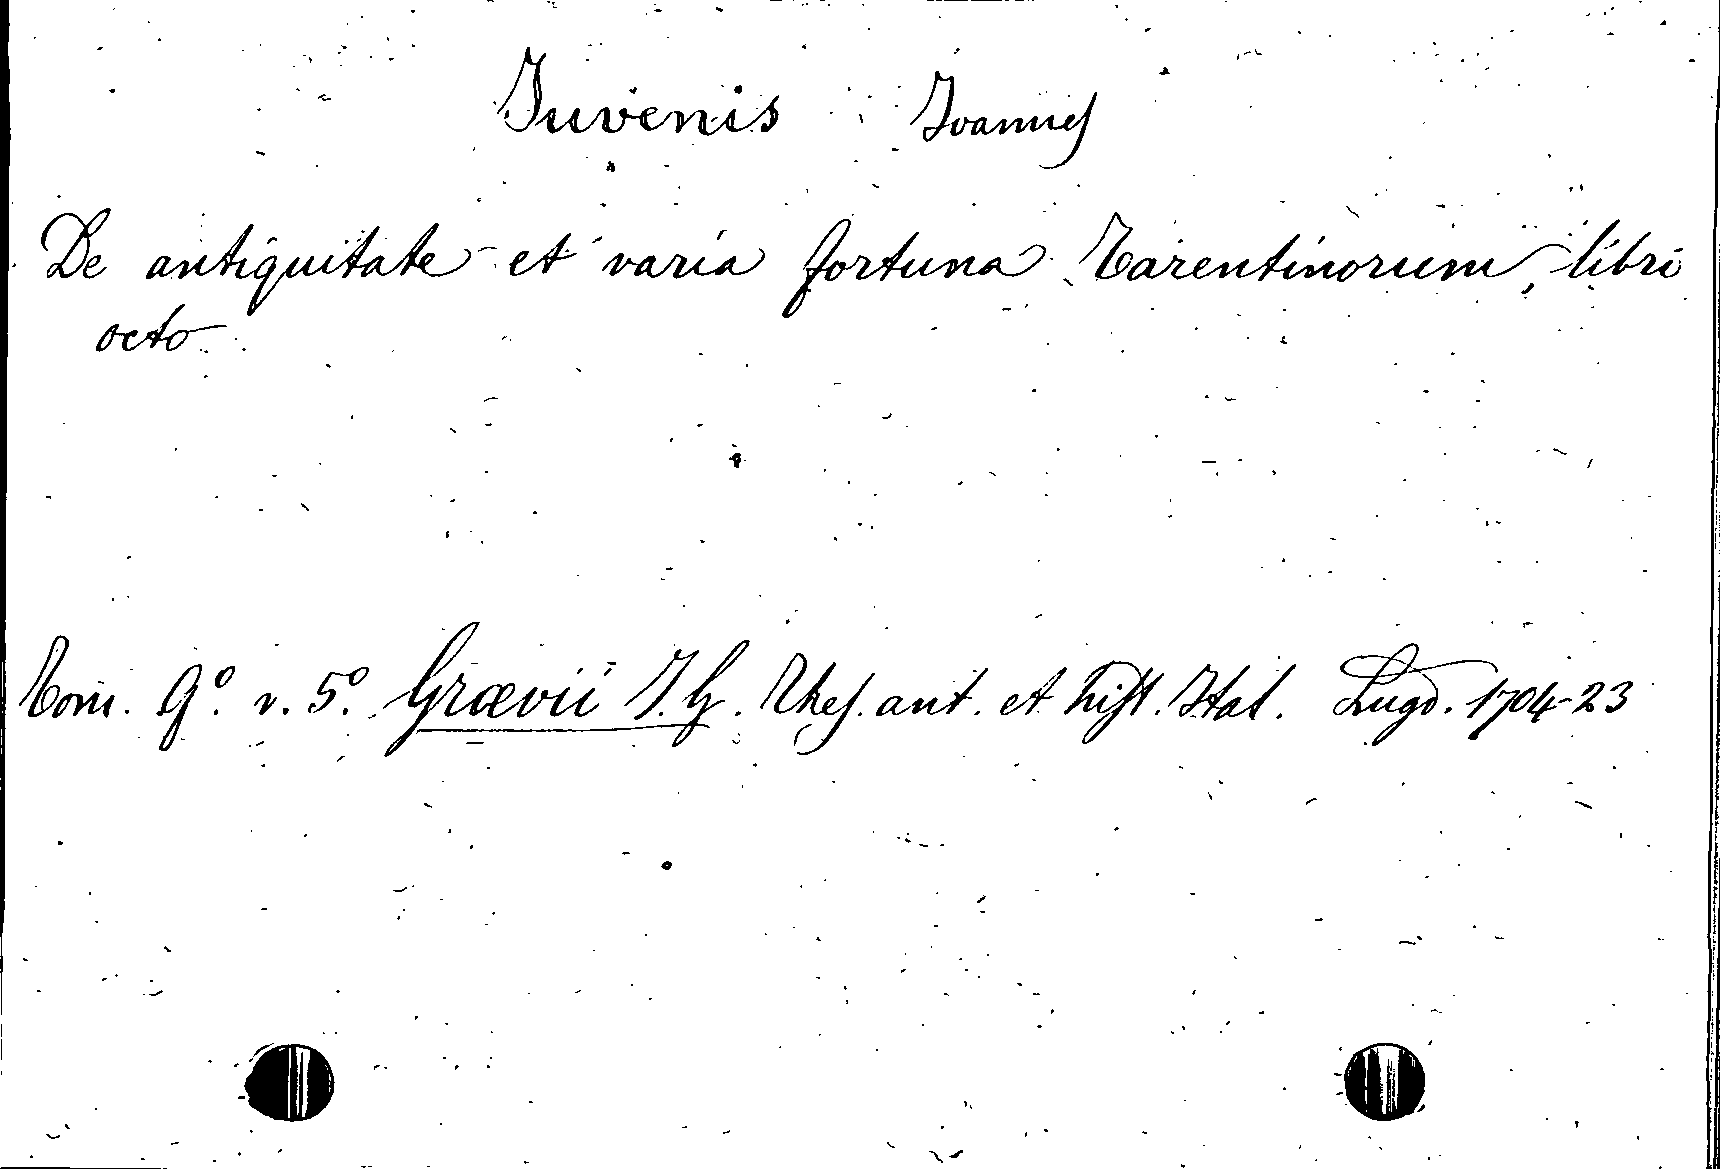 Juvenis Joannes
De antiquitate et varia fortuna Tarentinorum, libri
octo
Tom. 9º. v. 5º. Grævii J. G. Thes. ant. et hist. Ital. Lugd. 1704-23